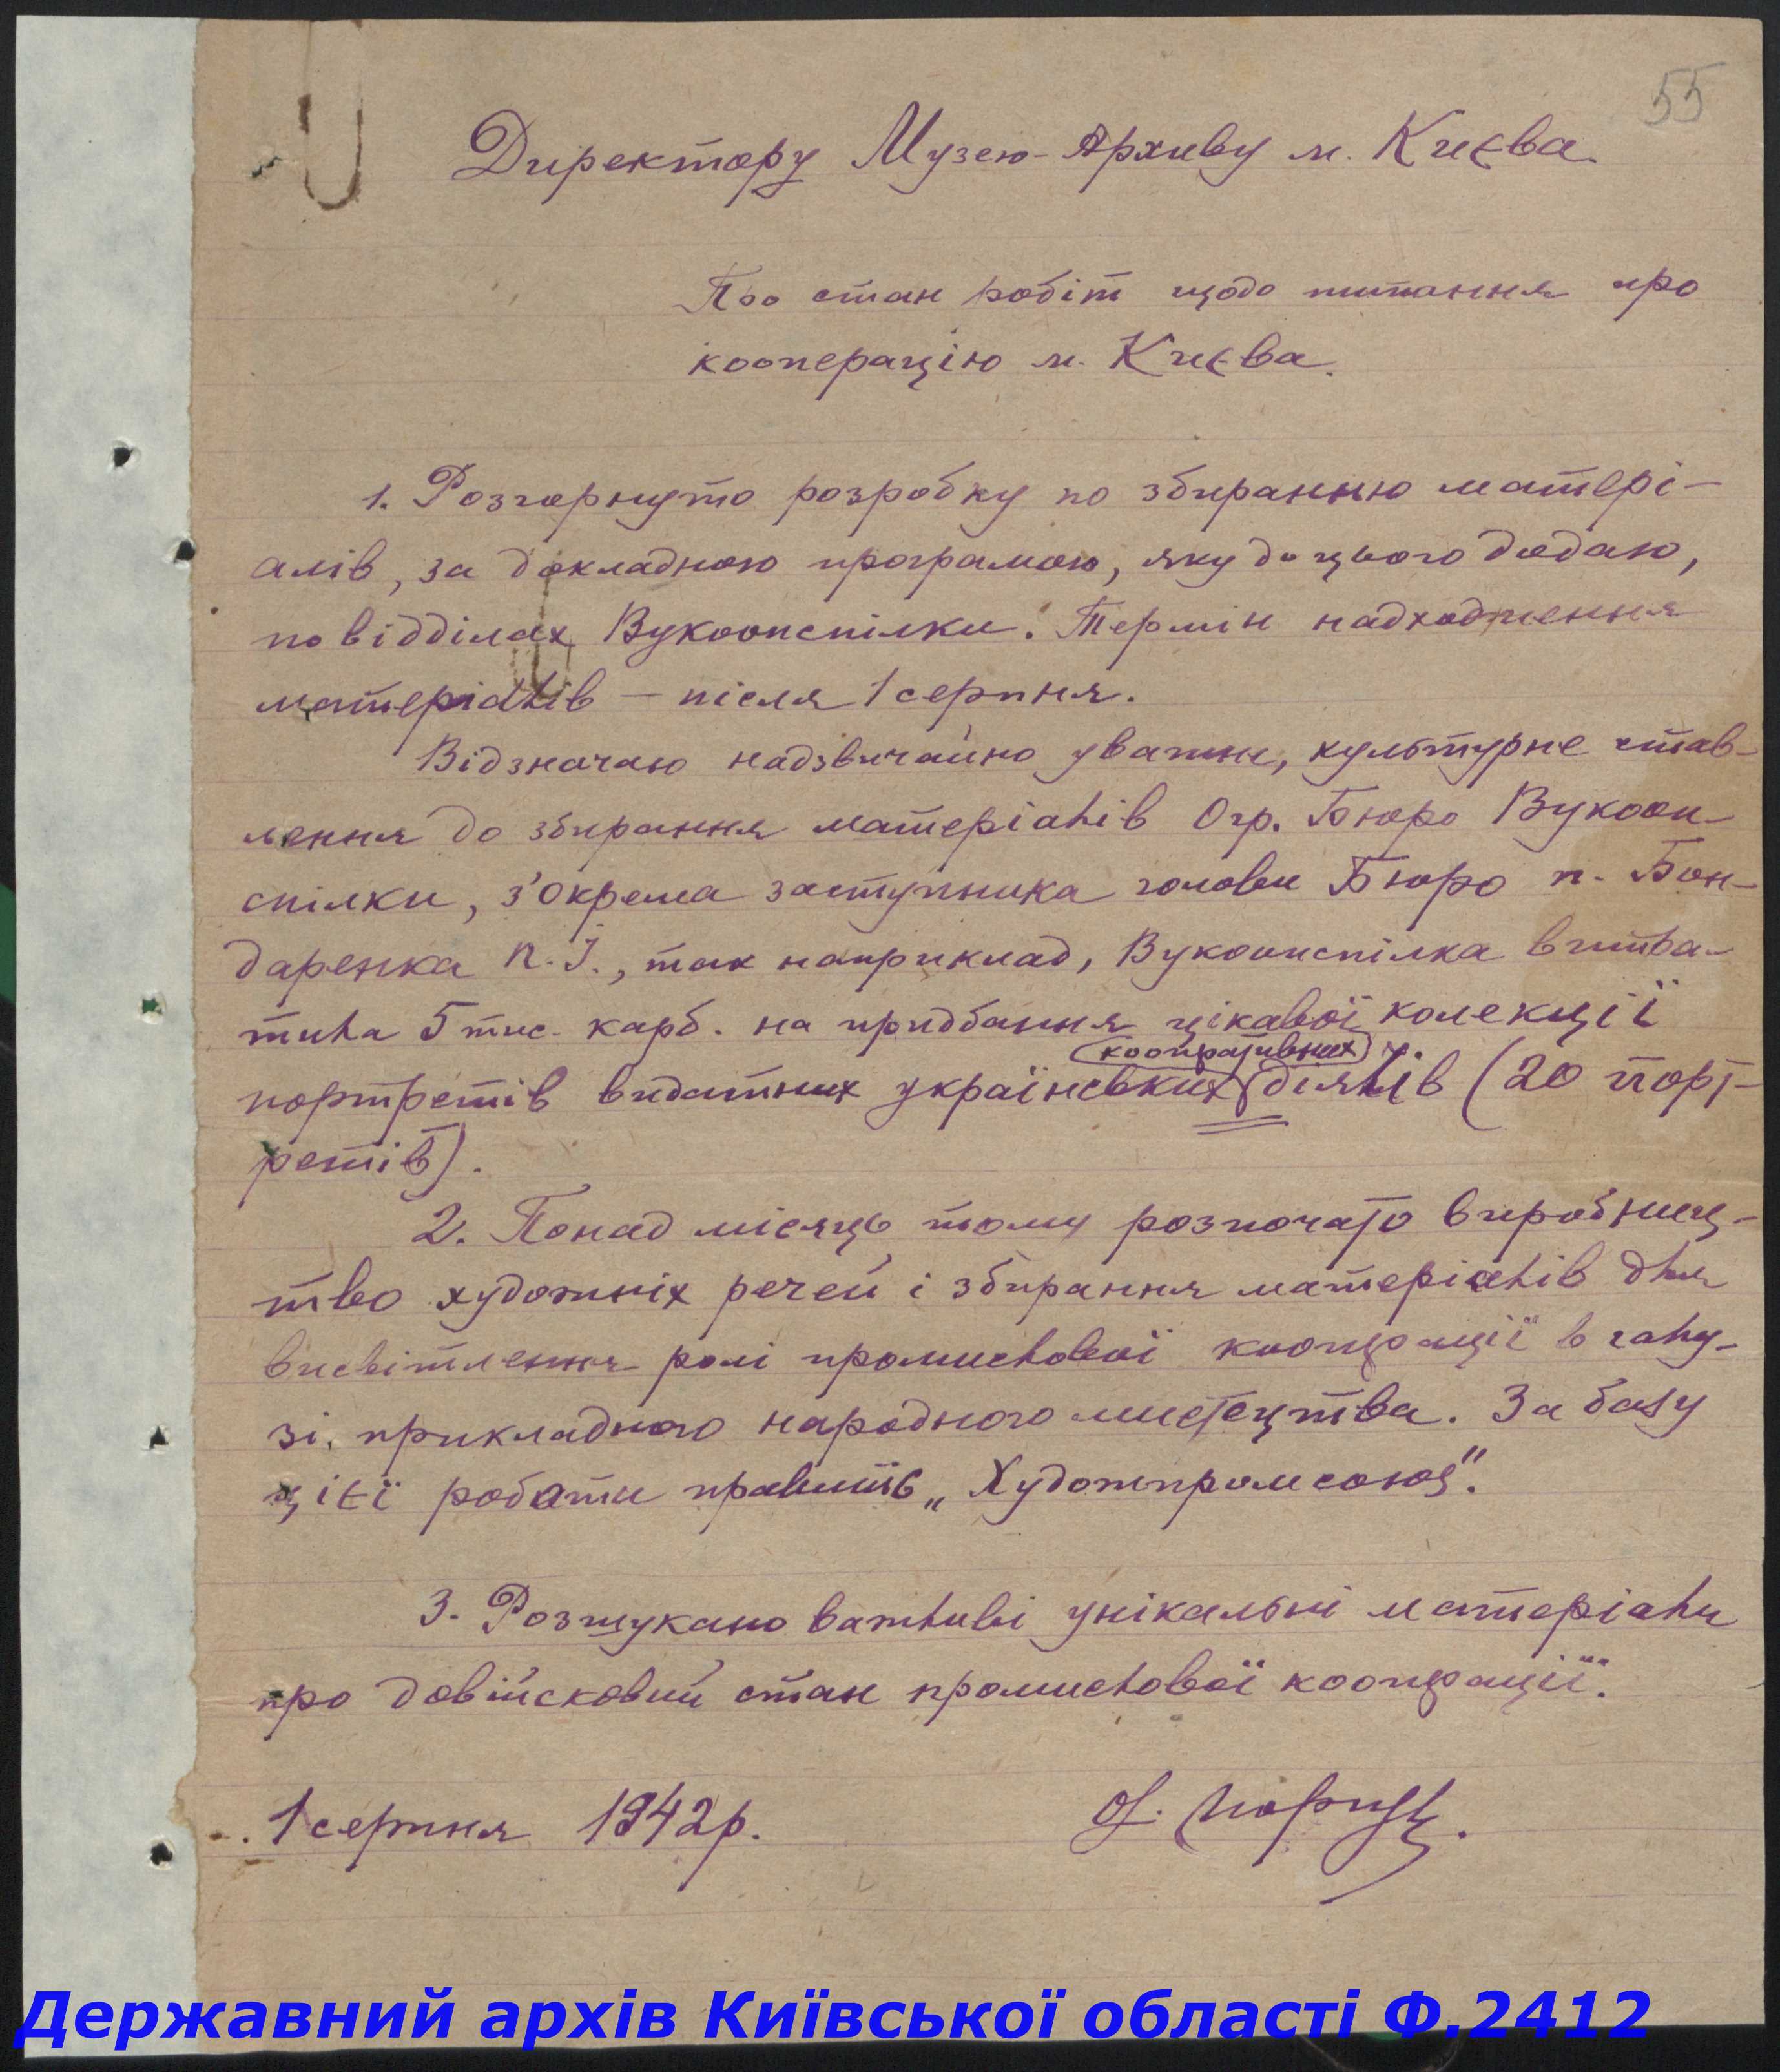 55
Директору Музею-Архиву м. Києва.
Про стан робіт щодо питання про
кооперацію м. Києва.
1. Розгорнуто розробку по збиранню матері-
алів, за докладною програмою, яку до цього додаю,
по відділах Вукоопспілки. Термін надходження
матеріалів – після 1 серпня.
Відзначаю надзвичайно уважне, культурне став-
лення до збирання матеріалів Огр. Бюро Вукооп-
спілки, з'окрема заступника голови Бюро п. Бон-
даренка П. І., так наприклад, Вукоопспілка витра-
тила 5 тис. карб. на придбання цікавої колекції
кооперативних
портретів видатних українських діячів (20 порт-
ретів).
2. Понад місяць тому розпочато виробниц-
тво художніх речей і збирання матеріалів для
висвітлення ролі промислової кооперації в галу-
зі прикладного народного мистецтва. За базу
цієї роботи править „Художпромсоюз".
3. Розшукано важливі унікальні матеріали
про довійсковий стан промислової кооперації.
1 серпня 1942 р.
Державний архів Київської області Ф.2412